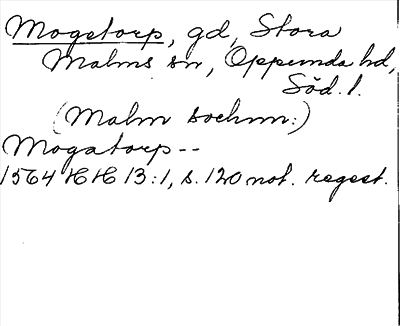 Mogetorp, gd, Stora
Malms sn, Oppunda hd,
Söd. l.
(Malm sochnn:)
Mogatorp --
1564 HH 13:1, s. 120 not. regest.